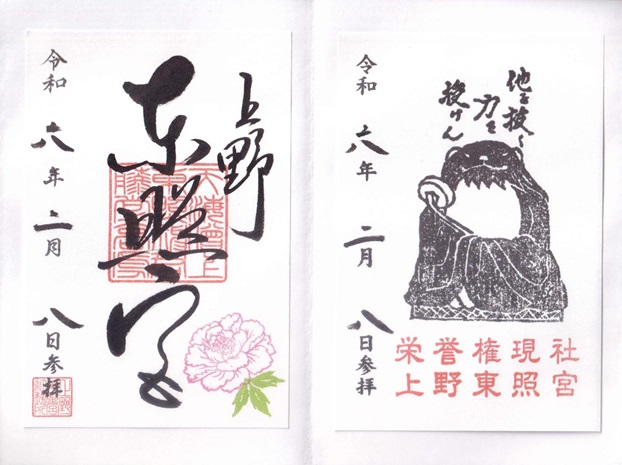 上野
東照宮
令和六年二月八日参拝
他を抜く
力を
授けん
令和六年二月八日参拝
栄誉権現社
上野東照宮